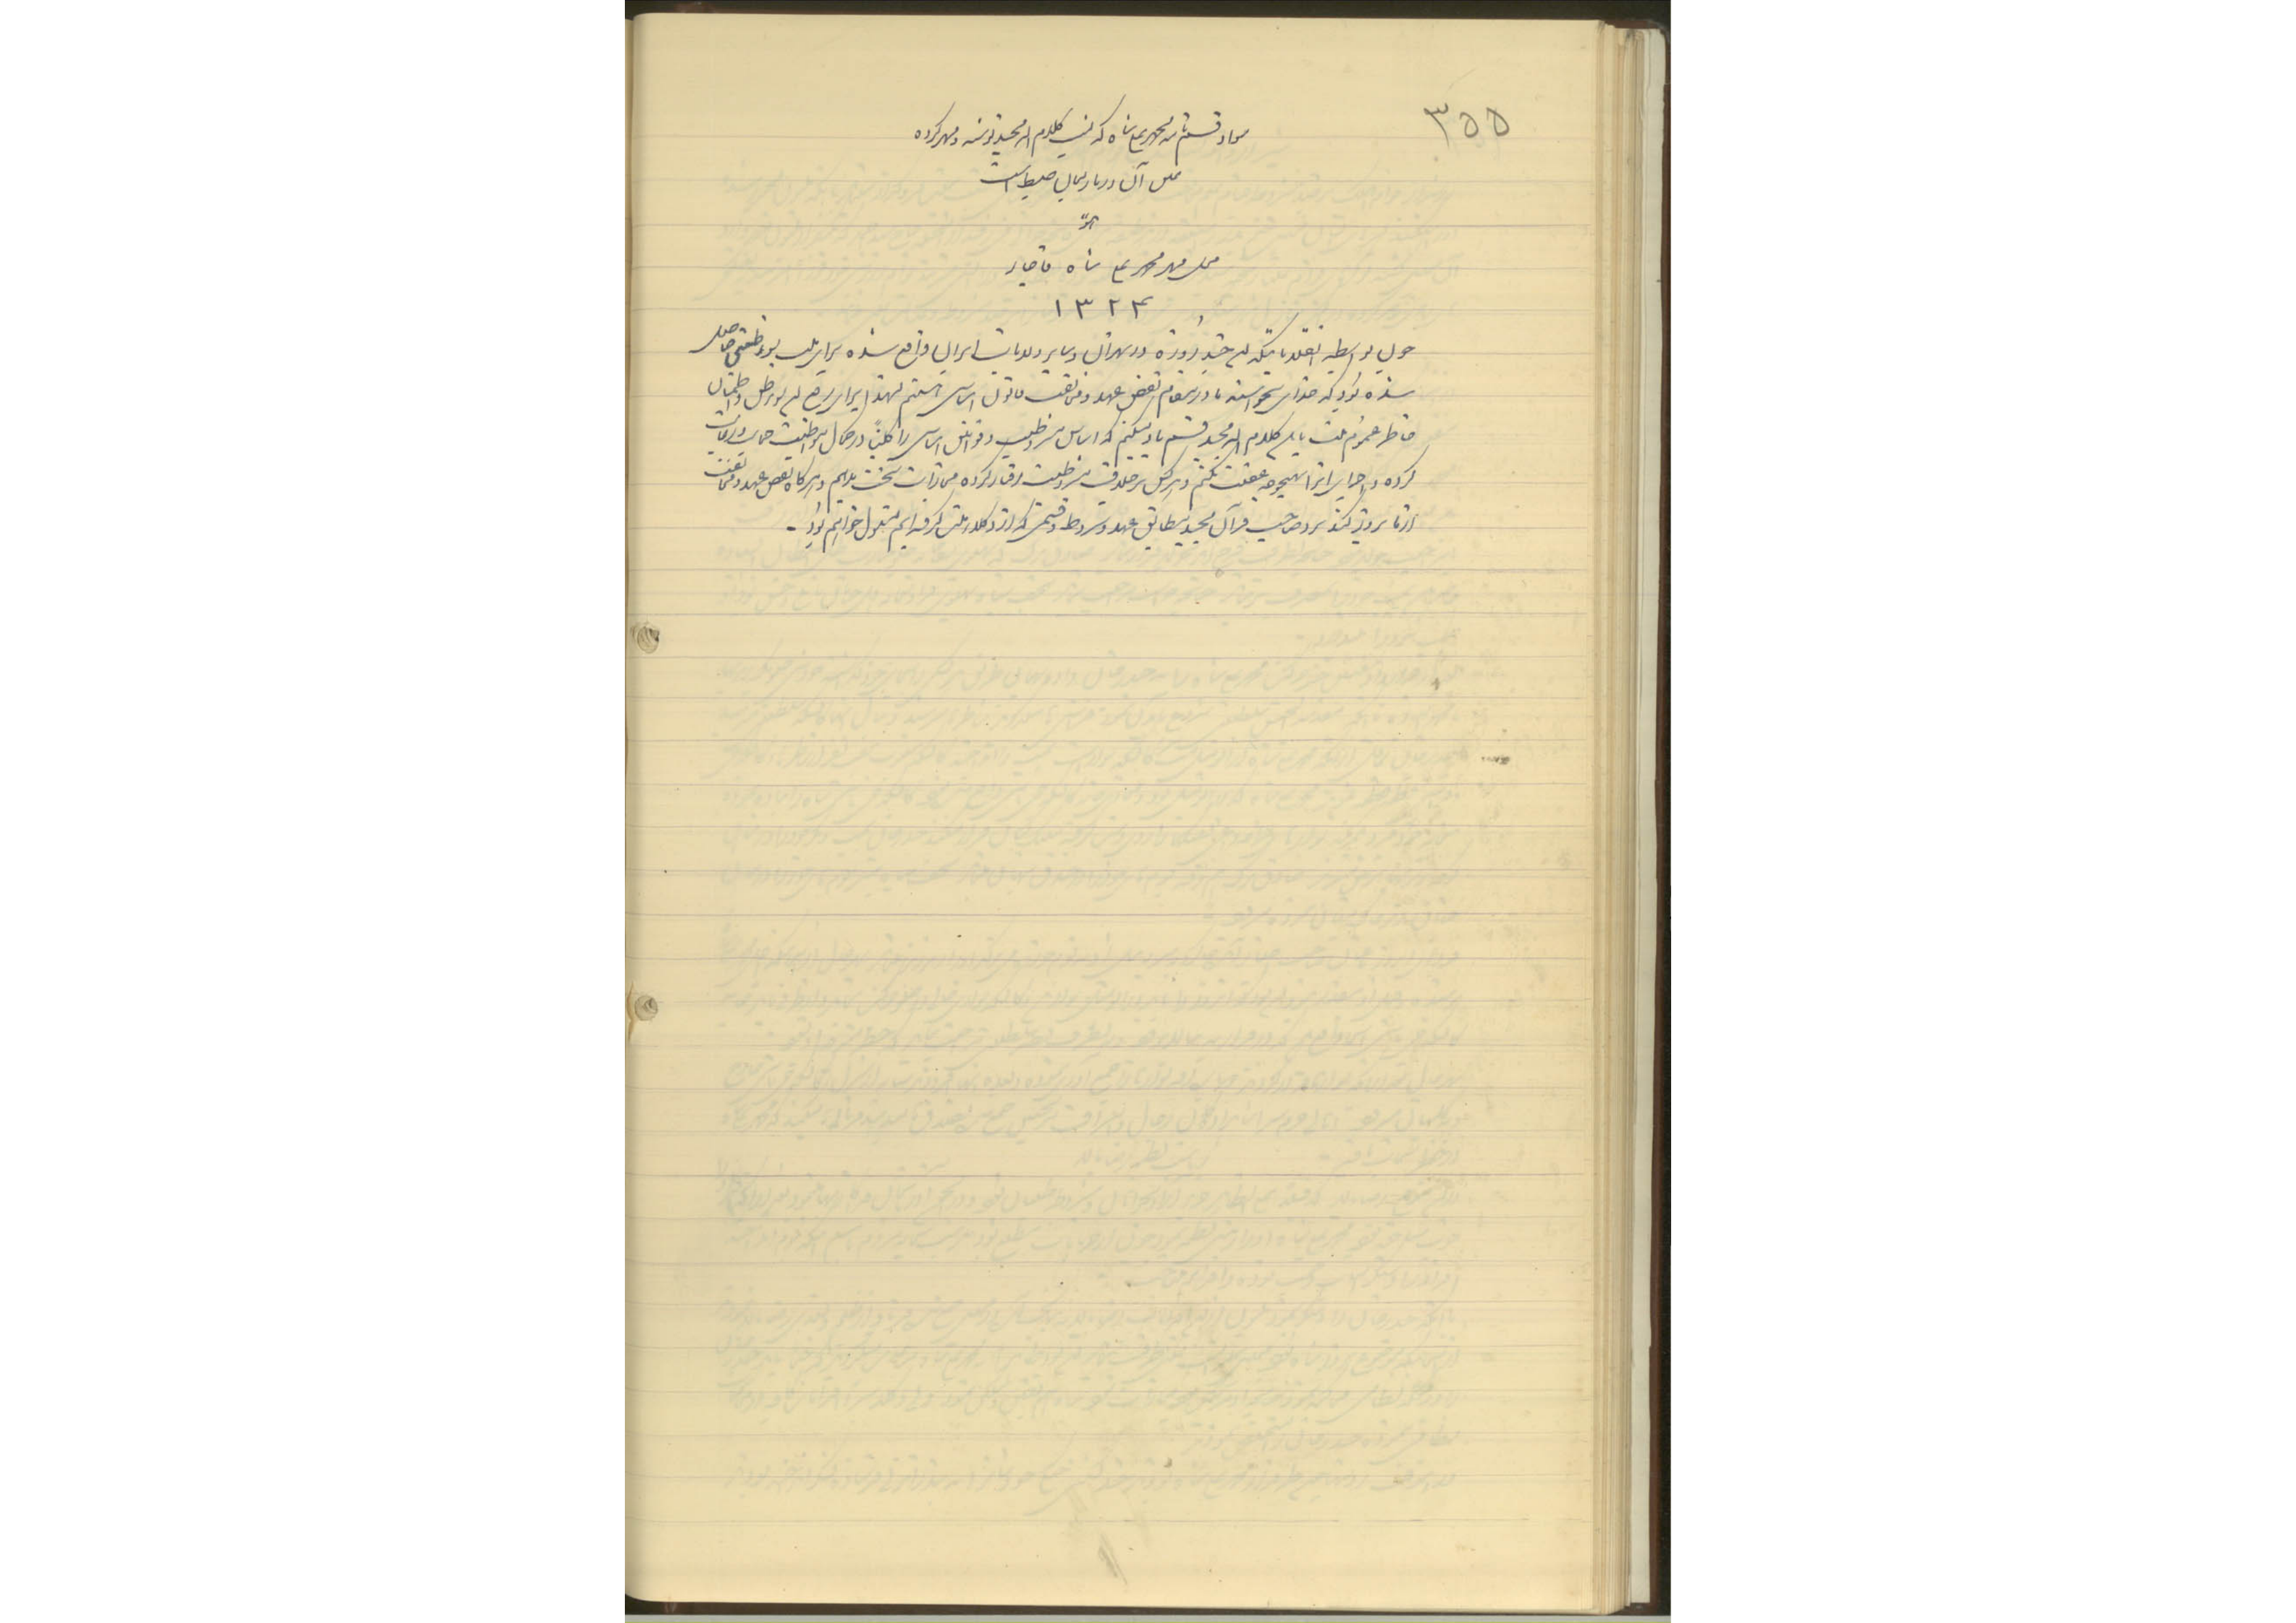 ۳۵۵
سواد قسم نامه محمد علی شاه که پشت کلام اله مجید نوشته و مهر کرده
عین آن در پارلمان ضبط است
هو
محل مهر محمد علی شاه قاجار
۱۳۲۴
چون بواسطه انقلاباتیکه این چند روزه در طهران و سایر ولایات ایران واقع شده برای ملت سوء ظنی حاصل
شده بود که خدای نخواسته ما در مقام نقض عهد و مخالفت قانون اساسی هستیم لهذا برای رفع این سوء ظن و اطمینان
خاطر عموم ملت باین کلام اله مجید قسم یاد میکنیم که اساس مشروطیت و قوانین اساسی را کلیةً در کمال مواظبت حمایت و رعایت
کرده و اجرای انرا بهیچوجه غفلت نکنیم و هر کس بر خلاف مشروطیت رفتار کرده مجازات سخت بدهیم و هر گاه نقض عهد و مخالفت
از ما بروز کند نزد صاحب قرآن مجید مطابق عهد و شروط و قسمی که از وکلاء ملت گرفته ایم مسئول خواهیم بود -